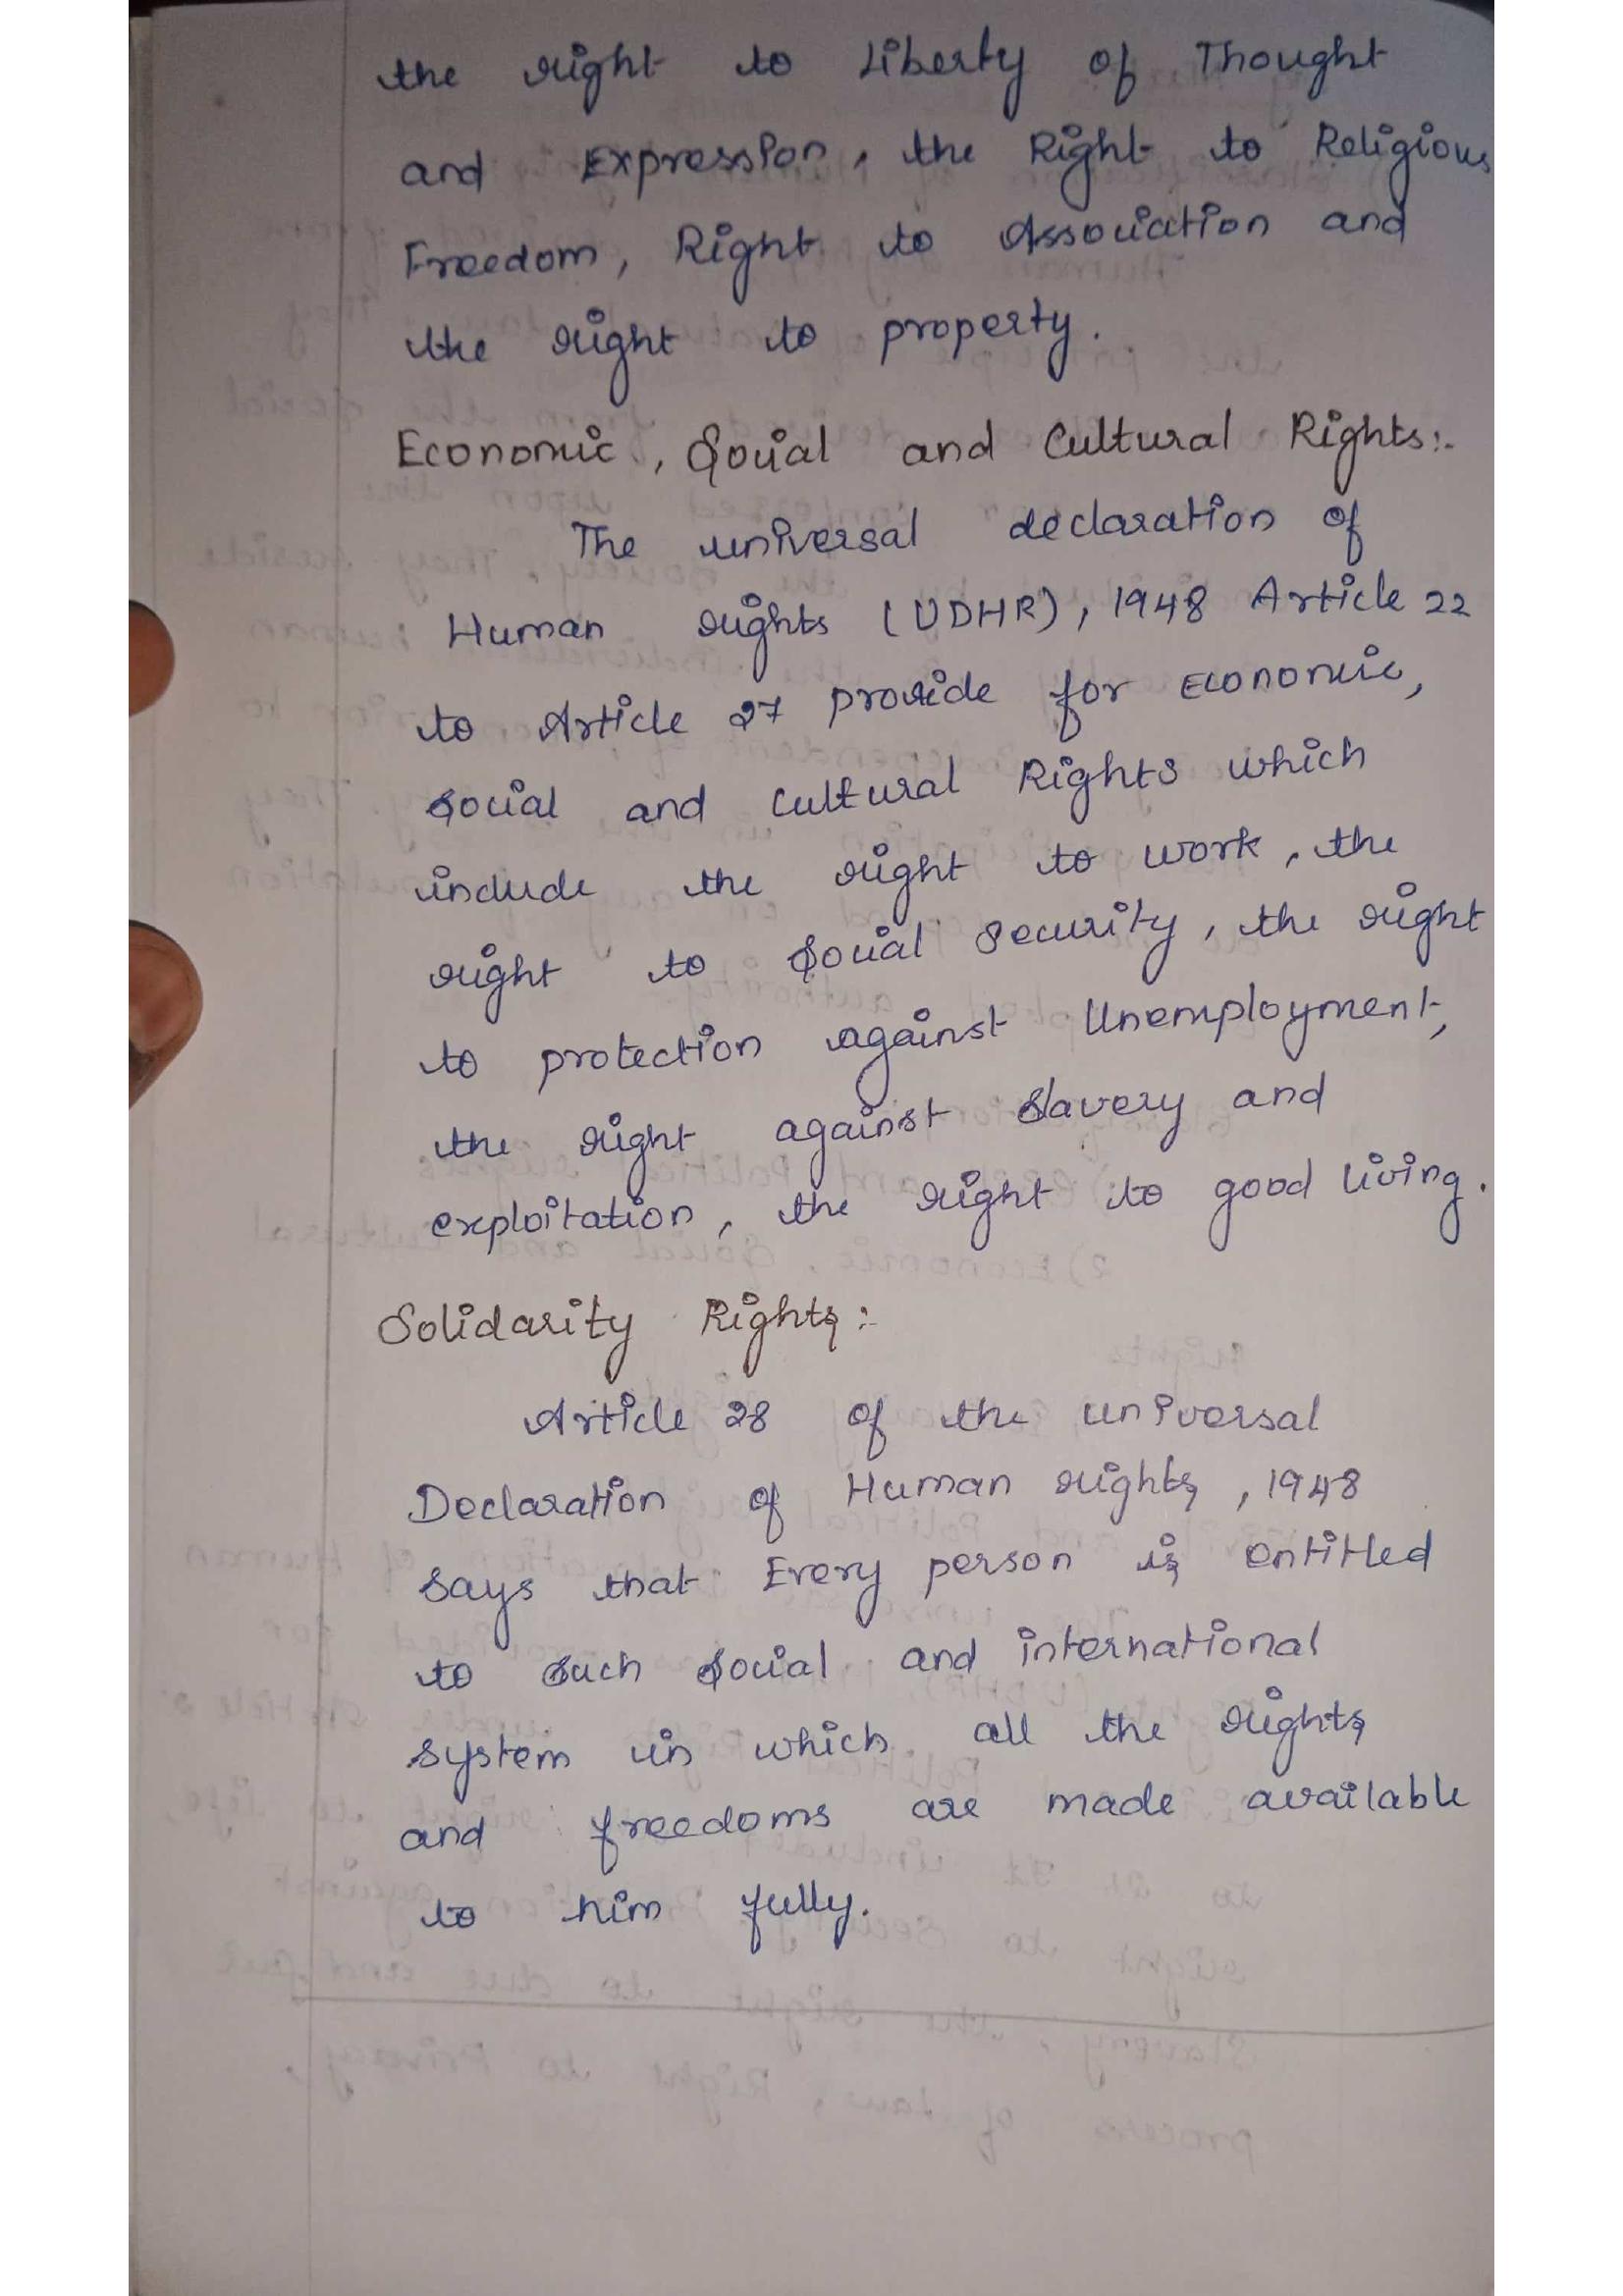 the right to Liberty of Thought
and Expression, the Right to Religious
Freedom, Right to Association and
the right to property.
Economic, Social and Cultural Rights:-
The universal declaration of
Human rights (UDHR), 1948 Article 22
to Article 27 provide for Economic,
social and cultural Rights which
include the right to work, the
right to Social Security, the right
to protection against Unemployment,
the right against slavery and
exploitation, the right to good living.
Solidarity Rights:-
Article 28 of the universal
Declaration of Human rights, 1948
says that Every person is entitled
to such social and international
system in which all the rights
and freedoms are made available
to him fully.